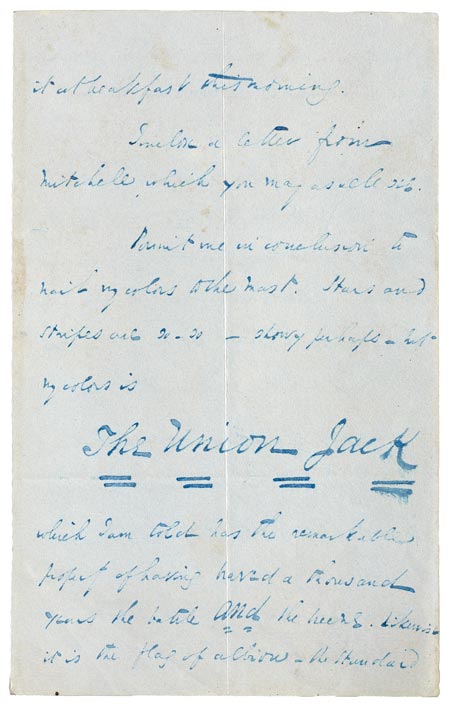 it at breakfast this morning.
I inclose a letter from
Mitchell which you may as well see.
Permit me in conclusion to
nail my colors to the mast. Stars and
stripes are so-so — showy perhaps — but
my colors is
The Union Jack
which I am told has the remarkable
property of having braved a thousand
years the battle and the breeze. Likewise
it is the flag of Albion — the standard